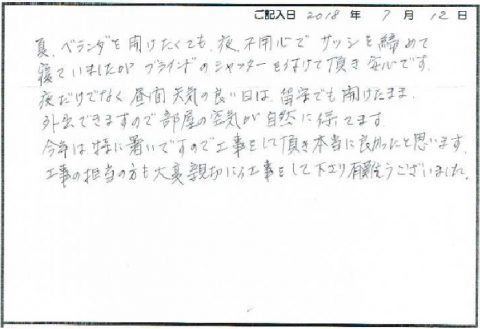 ご記入日 2018 年 7 月 12 日
夏、ベランダを開けたくても、夜、不用心で サッシを締めて
寝ていましたが ブラインドのシャッターを付けて頂き 安心です。
夜だけでなく 昼間 天気の良い日は、留守でも開けたまま、
外出できますので部屋の空気が自然に保てます
今年は特に暑いですので工事をして頂き本当に良かったと思います。
工事の担当の方も大変親切に仕事をして下さり有難うございました。